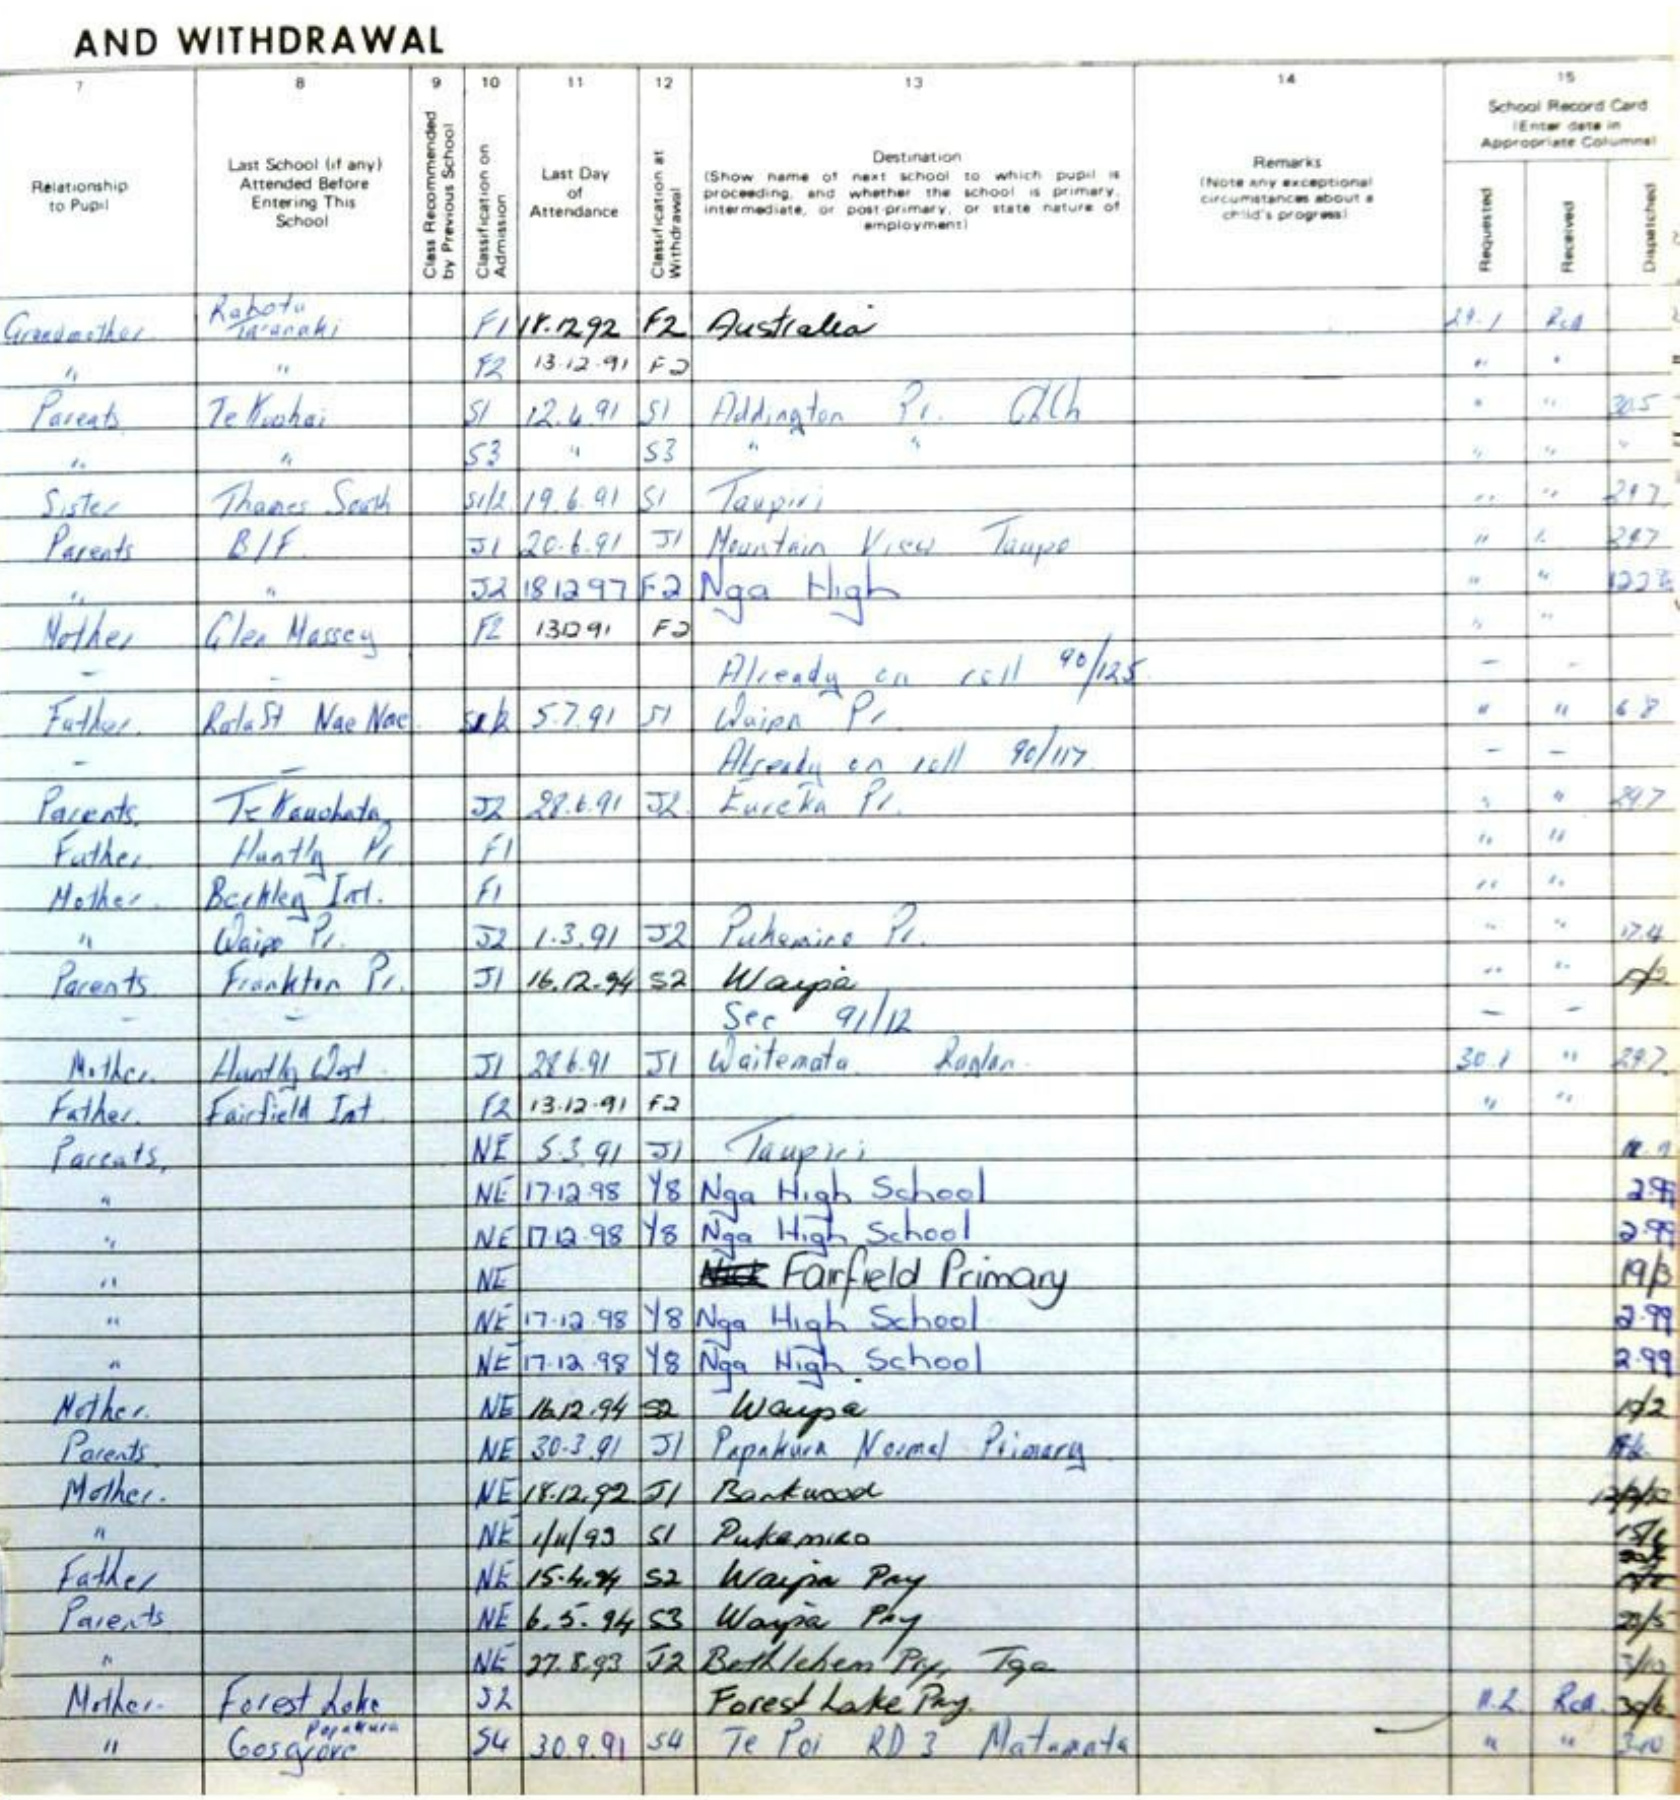 AND WITHDRAWAL
7 8 9 10 11 12 13 14 15
Relationship to Pupil
Last School (if any) Attended Before Entering This School
Class Recommended by Previous School
Classification on Admission
Last Day of Attendance
Classification at Withdrawal
Destination
(Show name of next school to which pupil is proceeding, and whether the school is primary, intermediate, or post-primary, or state nature of employment)
Remarks
(Note any exceptional circumstances about a child's progress)
School Record Card
(Enter date in Appropriate Columns)
Requested Received Dispatched
Grandmother Rahotu Taranaki F1 18.12.92 F2 Australia 29.1 Rcd
" " F2 13.12.91 F2 " "
Parents Te Kowhai S1 12.4.91 S1 Addington Pr. ChCh " " 30.5
" " S3 " S3 " " " " "
Sister Thames South S1/2 19.6.91 S1 Taupiri " " 29.7
Parents B/F. J1 20.6.91 J1 Mountain View Taupo " " 29.7
" " J2 18 12 97 F2 Nga High " "
Mother Glen Massey F2 13 12 91 F2 " "
– – Already on roll 90/125 – –
Father Rata St Nae Nae 5.7.91 S1 Waipa Pr. " " 6 8
– – Already on roll 90/117 – –
Parents. Te Kauwhata J2 28.6.91 J2 Eureka Pr. " " 29.7
Father Huntly Pr F1 " "
Mother. Berkley Int. F1 " "
" Waipa Pr. J2 1.3.91 J2 Pukemiro Pr. " " 17.4
Parents Frankton Pr. J1 16.12.94 S2 Waipa " "
– – See 91/12 – –
Mother. Huntly West J1 28.6.91 J1 Waitemata Raglan. 30.1 " 29.7
Father. Fairfield Int F2 13.12.91 F2 " "
Parents, NE 5.3.91 J1 Taupiri
" NE 17.12.98 Y8 Nga High School 2.99
" NE 17.12.98 Y8 Nga High School 2.99
" NE Fairfield Primary 19/3
" NE 17.12.98 Y8 Nga High School 2.99
" NE 17.12.98 Y8 Nga High School 2.99
Mother. NE 16.12.94 S2 Waipa
Parents NE 30.3.91 J1 Papakura Normal Primary
Mother. NE 18.12.92 J1 Bankwood
" NE 1/11/93 S1 Pukemiro
Father NE 15.4.94 S2 Waipa Pry
Parents NE 6.5.94 S3 Waipa Pry 20/5
" NE 27.8.93 J2 Bethlehem Pry, Tga
Mother. Forest Lake J2 Forest Lake Pry. 11.2 Rcd.
" Cosgrove Papakura S4 30.9.91 S4 Te Poi RD 3 Matamata " " 3.10